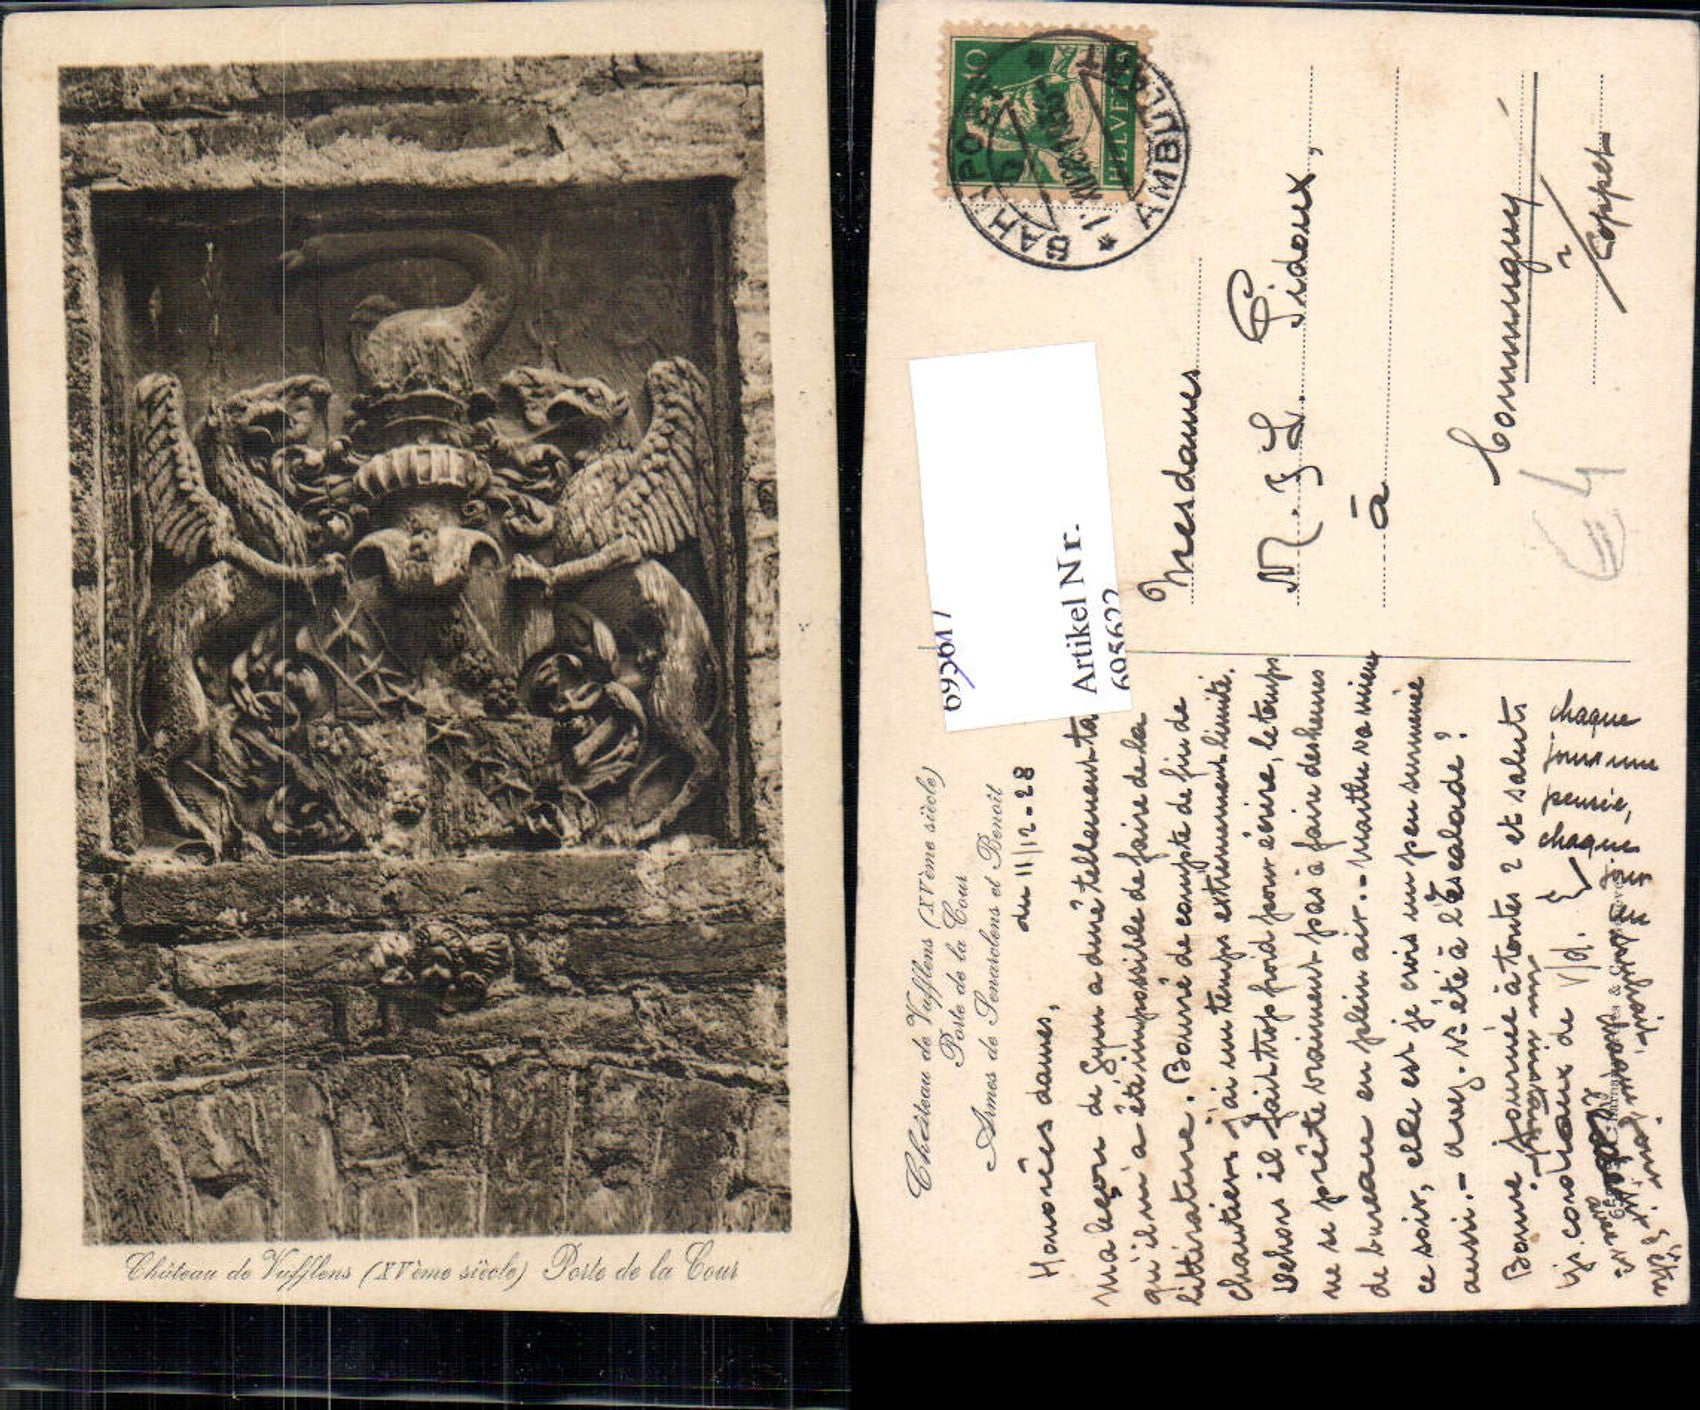 Château de Vufflens (XVème siècle) Porte de la Cour
HELVETIA
10
BAHNPOST
AMBULANT
Château de Vufflens (XVème siècle)
Porte de la Cour
Armes de Senarclens et Benoît
Artikel Nr.
695622
695617
Mesdames
M. & L. Pidoux,
à
Commugny
s/
Coppet
€ 4
du 11/12-28
Honorées dames,
Ma leçon de Gym a duré tellement tard
qu'il m'a été impossible de faire de la
littérature. Bourré de compte de fin de
chantiers j'ai un temps extrêmement limité.
Dehors il fait trop froid pour écrire, le temps
ne se prête vraiment pas à faire des heures
de bureau en plein air. - Marthe va mieux
ce soir, elle est je crois un peu surmenée
aussi. - Avez-vs été à l'Escalade?
Bonne journée à toutes 2 et saluts
cordiaux de
chaque
jour une
pensée,
chaque
jour un